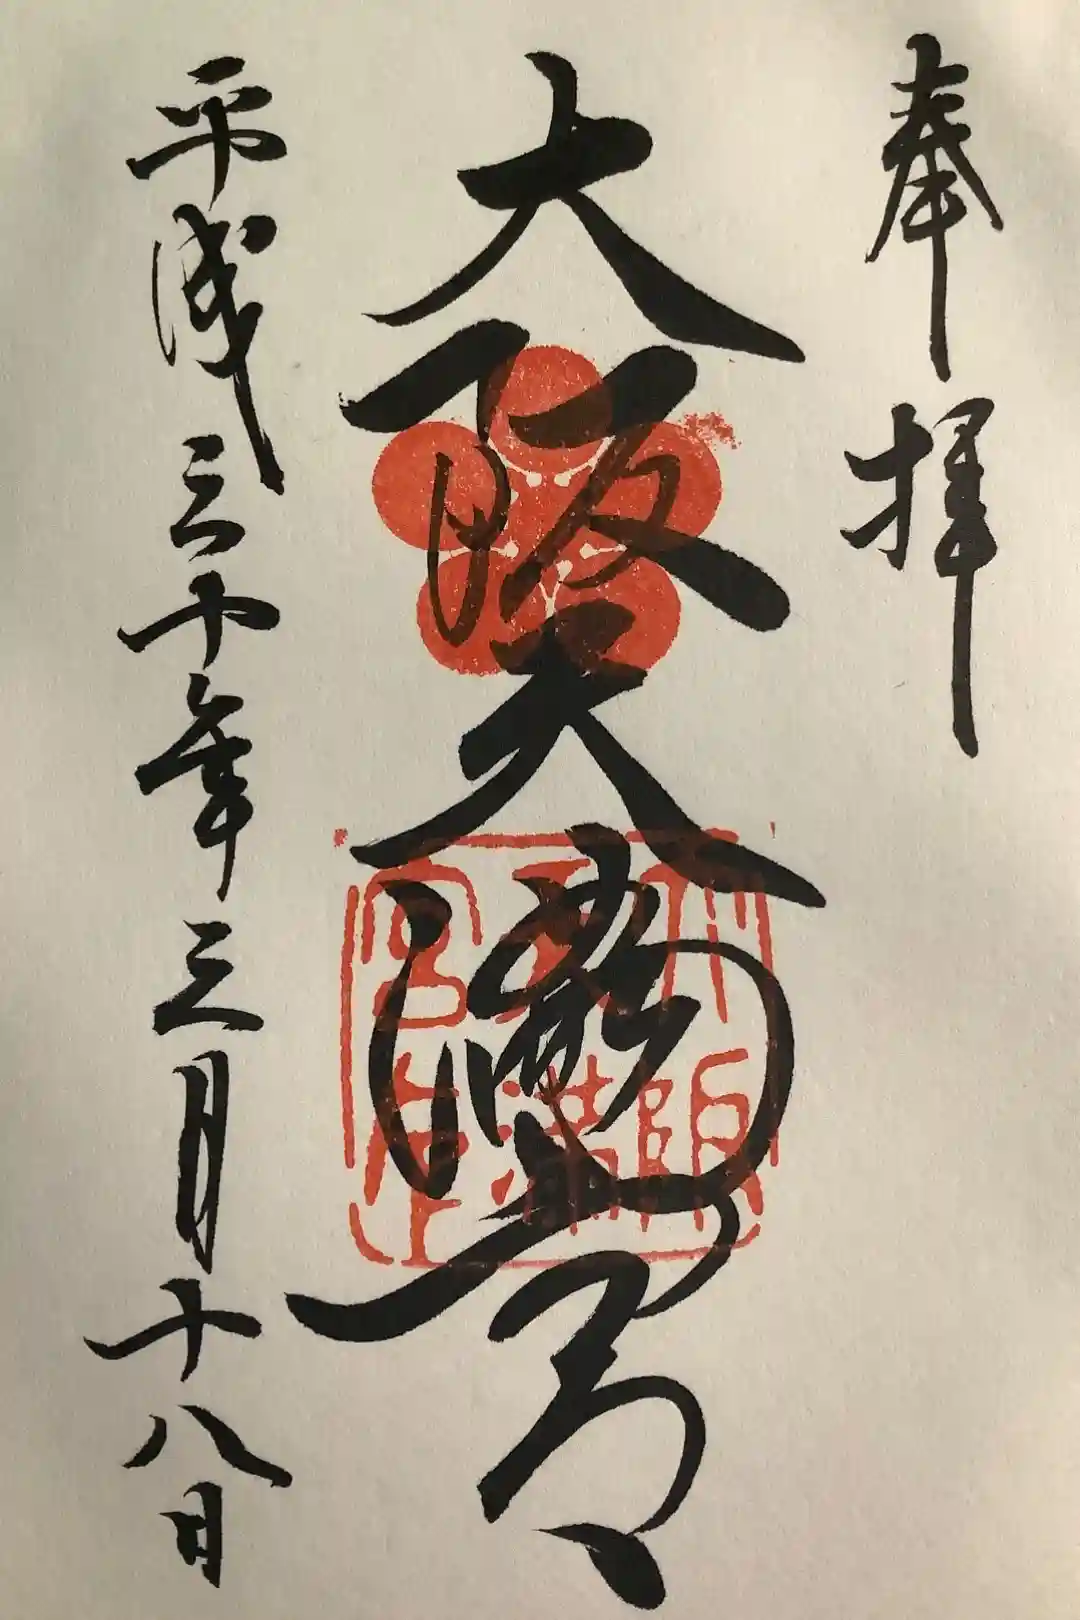 奉拝
大阪天満宮
大阪天満宮
平成三十年三月十八日